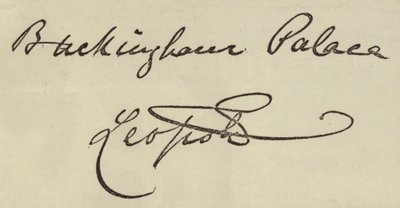 Buckingham Palace
Leopold